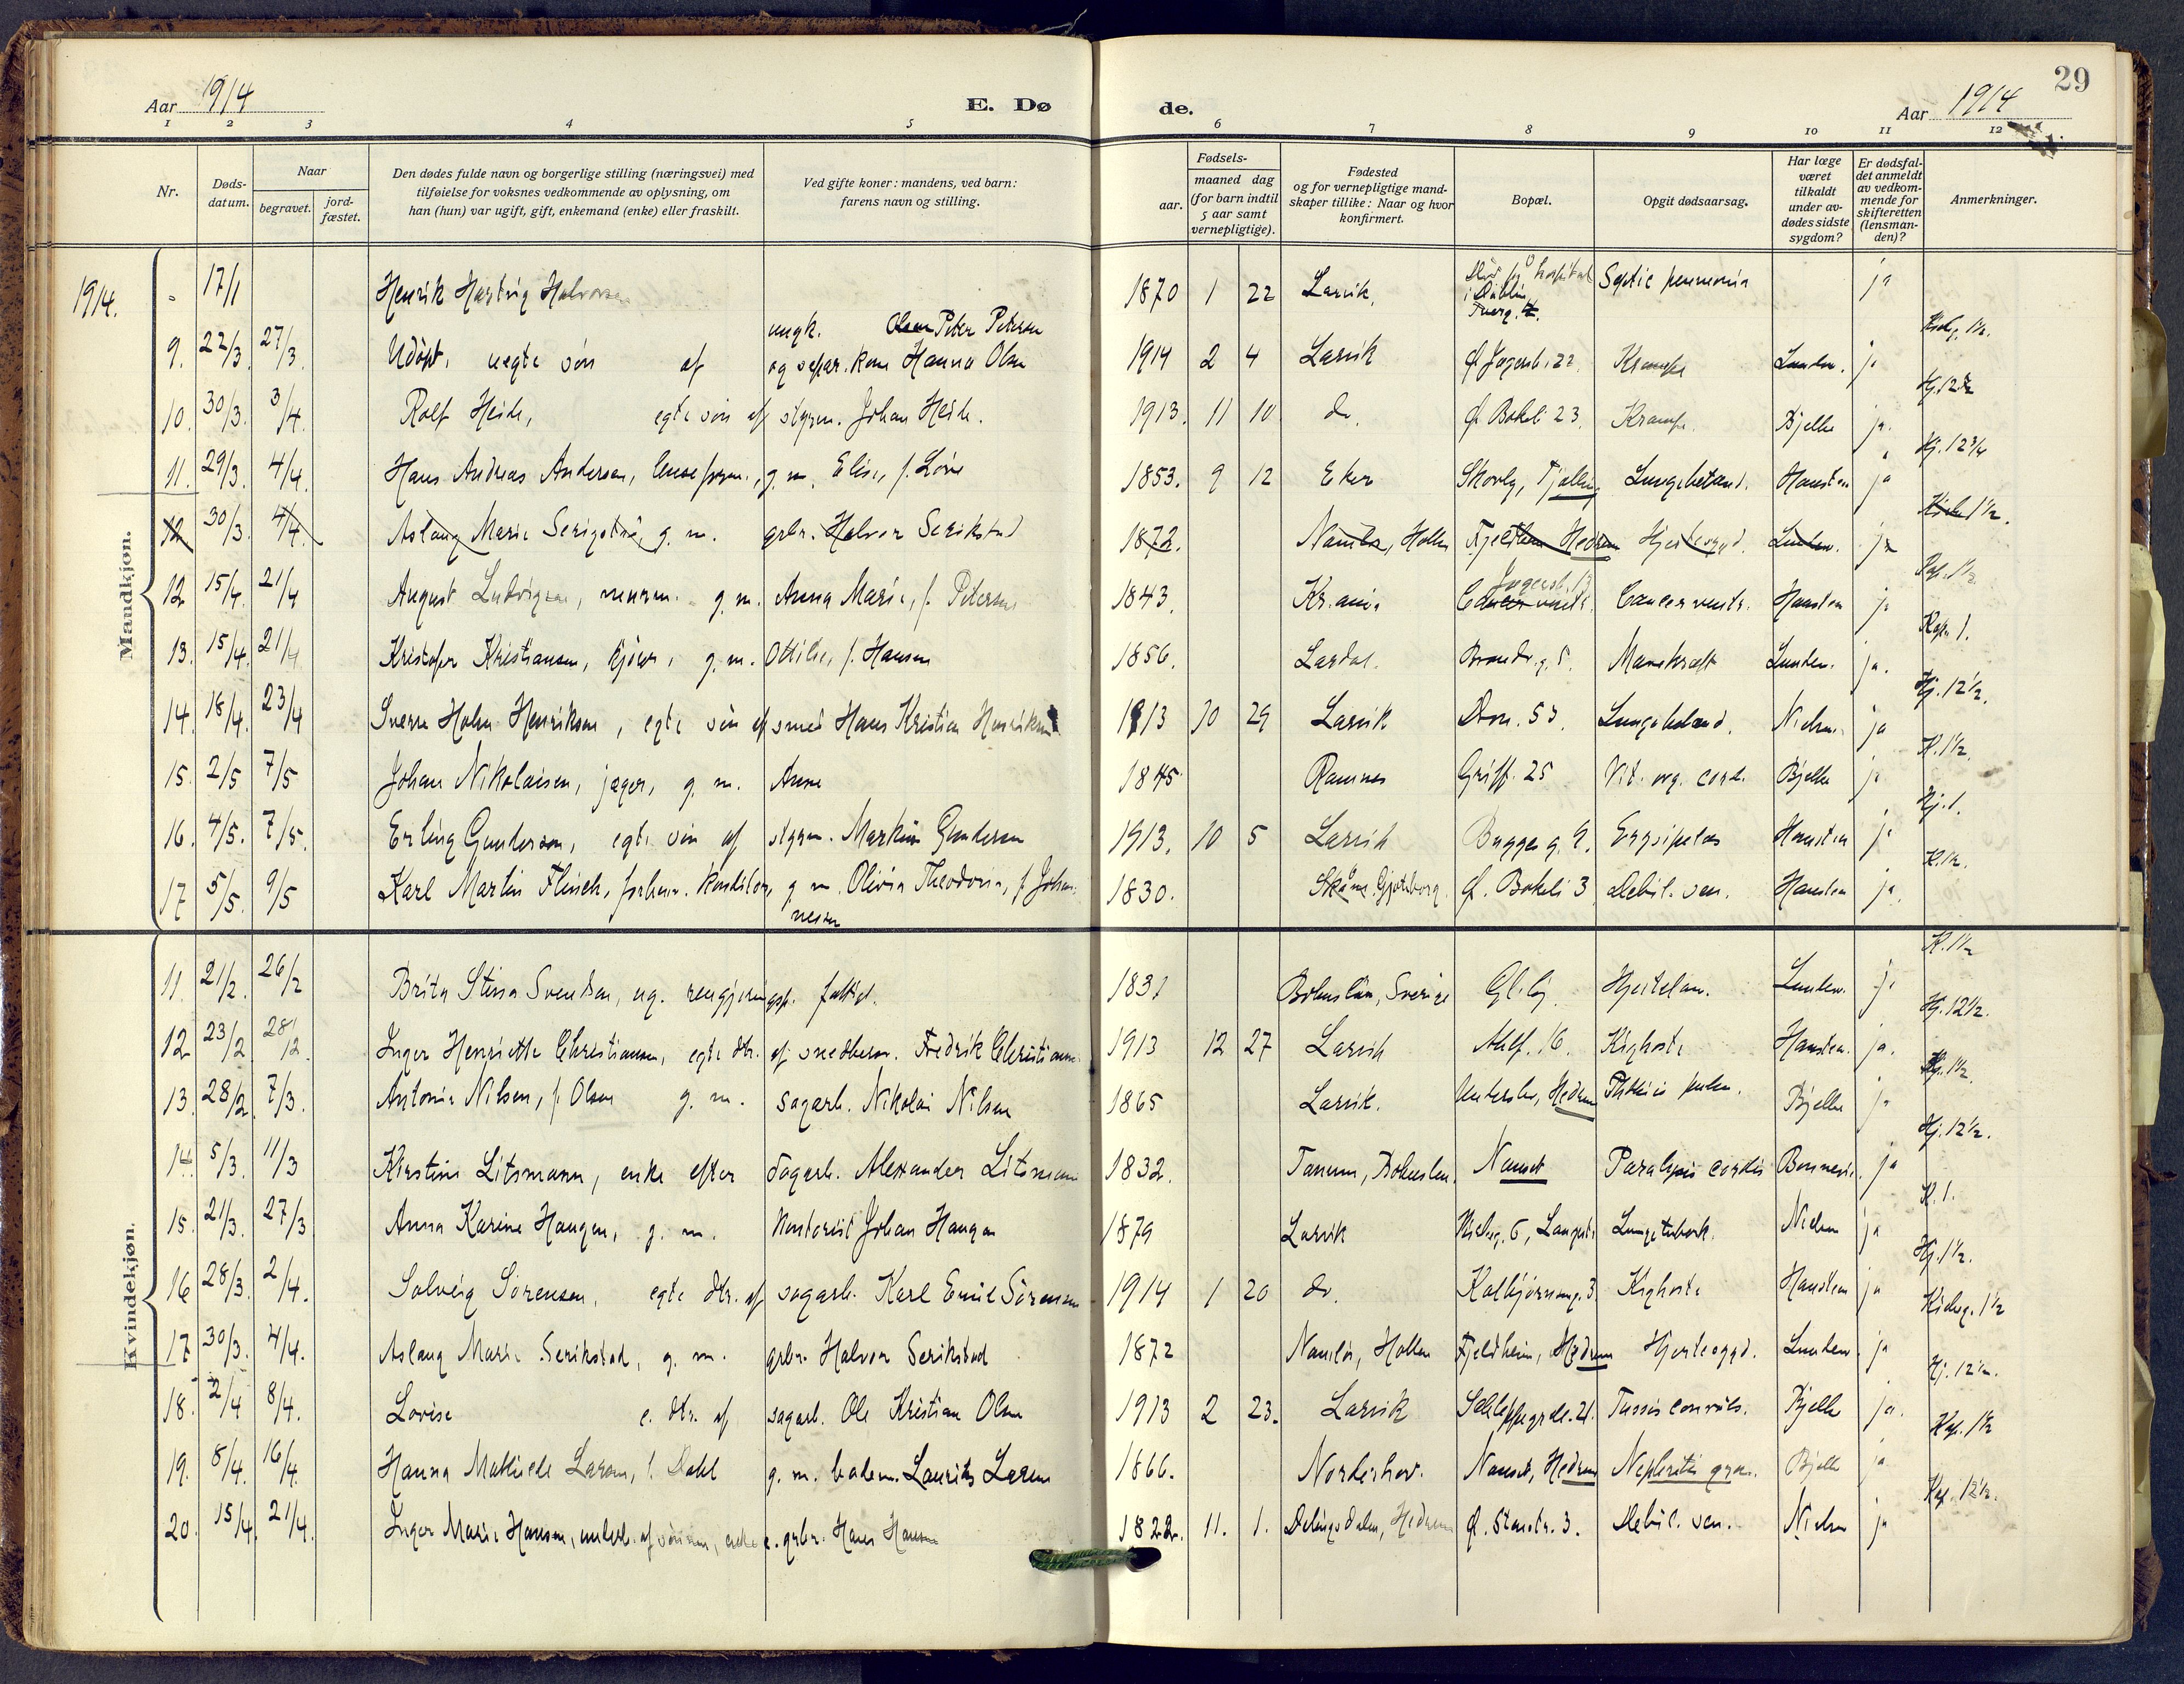 Aar 1914 E. Dø de. Aar 1914 29
1 2 3 4 5 6 7 8 9 10 11 12
Nr. Døds-datum. Naar begravet. jord-fæstet. Den dødes fulde navn og borgerlige stilling (næringsvei) med tilføielse for voksnes vedkommende av oplysning, om han (hun) var ugift, gift, enkemand (enke) eller fraskilt. Ved gifte koner: mandens, ved barn: farens navn og stilling. Fødsels- aar. maaned dag (for barn indtil 5 aar samt vernepligtige). Fødested og for vernepligtige mandskaper tillike: Naar og hvor konfirmert. Bopæl. Opgit dødsaarsag. Har læge været tilkaldt under avdødes sidste sygdom? Er dødsfaldet anmeldt av vedkommende for skifteretten (lensmanden)? Anmerkninger.
Mandkjøn.
1914. 17/1 Henrik Hartvig Halvorsen 1870 1 22 Larvik, i Dublin Septic pneumonia ja
9. 22/3. 27/3. Udøpt, uegte søn af ungk. Peter Petersen og separ. kone Hanna Olsen 1914 2 4 Larvik Ø. Jegersb. 22 Krampe Lunden. ja
10. 30/3. 3/4. Rolf Heide, egte søn af styrm. Johan Heide. 1913. 11 10 do. Ø. Bokeli 23. Krampe. Bjelke ja. Hj. 12 1/2
11. 29/3. 4/4. Hans Andreas Andersen, g. m. Elise, f. Løve 1853. 9 12 Eker Skovly, Tjølling Lungebetænd. Hansten ja Hj. 12 3/4
12 30/3. 4/4. Aslaug Marie Serigstad, g. m. grbr. Halvor Serikstad 1872. Namløs, Hollen Fjeldheim Hedrum Hjertesygd. Lunden. ja 1 1/2.
12 15/4. 21/4 August Ludvigsen, murm. g. m. Anna Marie, f. Petersen 1843. Kr.ania Cancer ventr. Hansten ja Kap. 1 1/2
13. 15/4. 21/4 Kristofer Kristiansen, kjører, g. m. Ottilie, f. Hansen 1856. Lardal. Brandv.g. 5. Mavekræft Lunden. ja. Kap. 1.
14. 18/4. 23/4 Sverre Holm Henriksen, egte søn af smed Hans Kristian Henriksen 1913 10 29 Larvik Dron. 53. Lungebetænd. Nielsen. ja Hj. 12 1/2.
15. 2/5 7/5 Johan Nikolaisen, jæger, g. m. Anne 1845 Ramnes Griff. 25 Vit. org. cord. Bjelke ja K. 1 1/2.
16. 4/5. 7/5. Erling Gundersen, egte søn af styrm. Markus Gundersen 1913. 10 5 Larvik Bugges g. 9. Erysipelas Hansten ja Hj. 1.
17 5/5. 9/5 Karl Martin Flinck, forhenv. konditor, g. m. Olivia Theodora, f. Johan-
nesen 1830. Skåne. Gjøteborg. Ø. Bokeli 3 Debil. sen. Hansten ja. K. 1 1/2.
Kvindekjøn.
11. 21/2. 26/2 Brita Stina Svendsen, ug. rengjøringsk. fattigl. 1831 Bohuslän, Sverige Glibj Hjertelam. Lunden. ja K. 1 1/2
12 23/2 28/2. Inger Henriette Christiansen, egte dtr. af snedkersv. Fredrik Christiansen. 1913 12 27 Larvik Ahlf. 16. Kighoste Hansten. ja. Hj. 12 1/2.
13. 28/2. 7/3. Antonie Nilsen, f. Olsen g. m. sagarb. Nikolai Nilsen 1865 Larvik. Hedrum Phthisis pulm. Bjelke ja 1 1/2.
14 5/3. 11/3 Kirstine Litsmann, enke efter dagarb. Alexander Litsmann 1832. Tanum, Bohuslen. Nanset Paralysis cordis ja Hj. 12 1/2.
15. 21/3. 27/3 Anna Karine Haugen, g. m. kontorist Johan Haugen 1879 Larvik Langest. Lungetuberk. Nielsen ja K. 1.
16 28/3. 2/4. Solveig Sørensen, egte dtr. af sagarb. Karl Emil Sørensen 1914 1 20 do. Kolbjørnsng. 3 Kighoste Hansten ja Hj. 1 1/2.
17 30/3. 4/4. Aslaug Marie Serikstad, g. m. grbr. Halvor Serikstad 1872 Namløs, Hollen Fjeldheim, Hedrum Hjertesygd. Lunden ja 1 1/2
18. 2/4 8/4. Lovise e. dtr. af sagarb. Ole Kristian Olsen 1913 2 23. Larvik Schleppegrells. 21. Tussis convuls. Bjelke ja. Hj. 12 1/2.
19. 8/4. 16/4. Hanna Mathilde Larsen, f. Dahl g. m. badem. Laurits Larsen 1866. Norderhov. Nanset, Hedrum Nephritis gra. Bjelke ja Kap. 1 1/2
20. 15/4. 21/4. Inger Marie Hansen, underh. af sønnen, enke e. grbr. Hans Hansen 1822. 11. 1. Delingsdalen, Hedrum Ø. Stenstr. 3. Debil. sen. Nielsen ja Kap. 12 1/2.